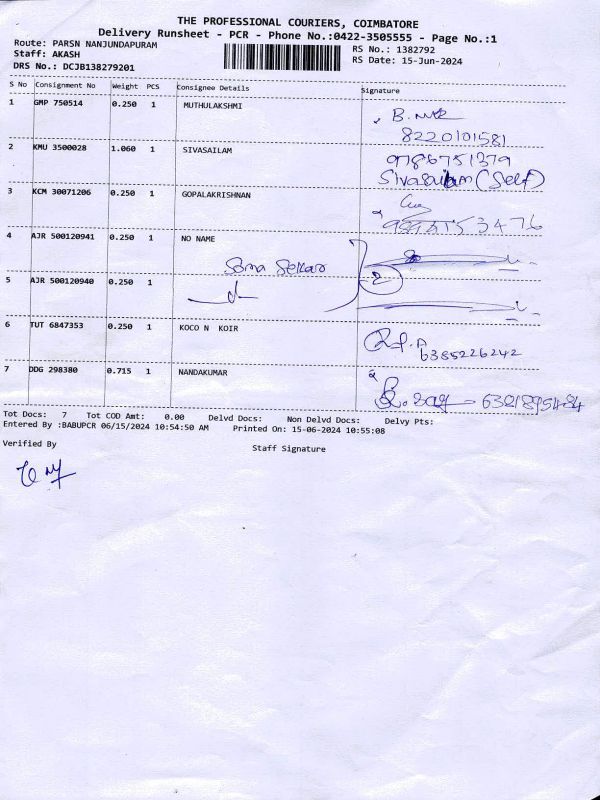 THE PROFESSIONAL COURIERS, COIMBATORE
Delivery Runsheet - PCR - Phone No.:0422-3505555 - Page No.:1
Route: PARSN NANJUNDAPURAM
Staff: AKASH
RS No.: 1382792
DRS No.: DCJB138279201
RS Date: 15-Jun-2024
S No Consignment No Weight PCS Consignee Details Signature
1 GMP 750514 0.250 1 MUTHULAKSHMI
8220101581
2 KMU 3500028 1.060 1 SIVASAILAM
9786751379
Sivasailam (Self)
3 KCM 30071206 0.250 1 GOPALAKRISHNAN
4 AJR 500120941 0.250 1 NO NAME
Soma Sekar
2
5 AJR 500120940 0.250 1
6 TUT 6847353 0.250 1 KOCO N KOIR
6385226242
7 DDG 298380 0.715 1 NANDAKUMAR
Tot Docs: 7 Tot COD Amt: 0.00 Delvd Docs: Non Delvd Docs: Delvy Pts:
Entered By :BABUPCR 06/15/2024 10:54:50 AM Printed On: 15-06-2024 10:55:08
Verified By
Staff Signature